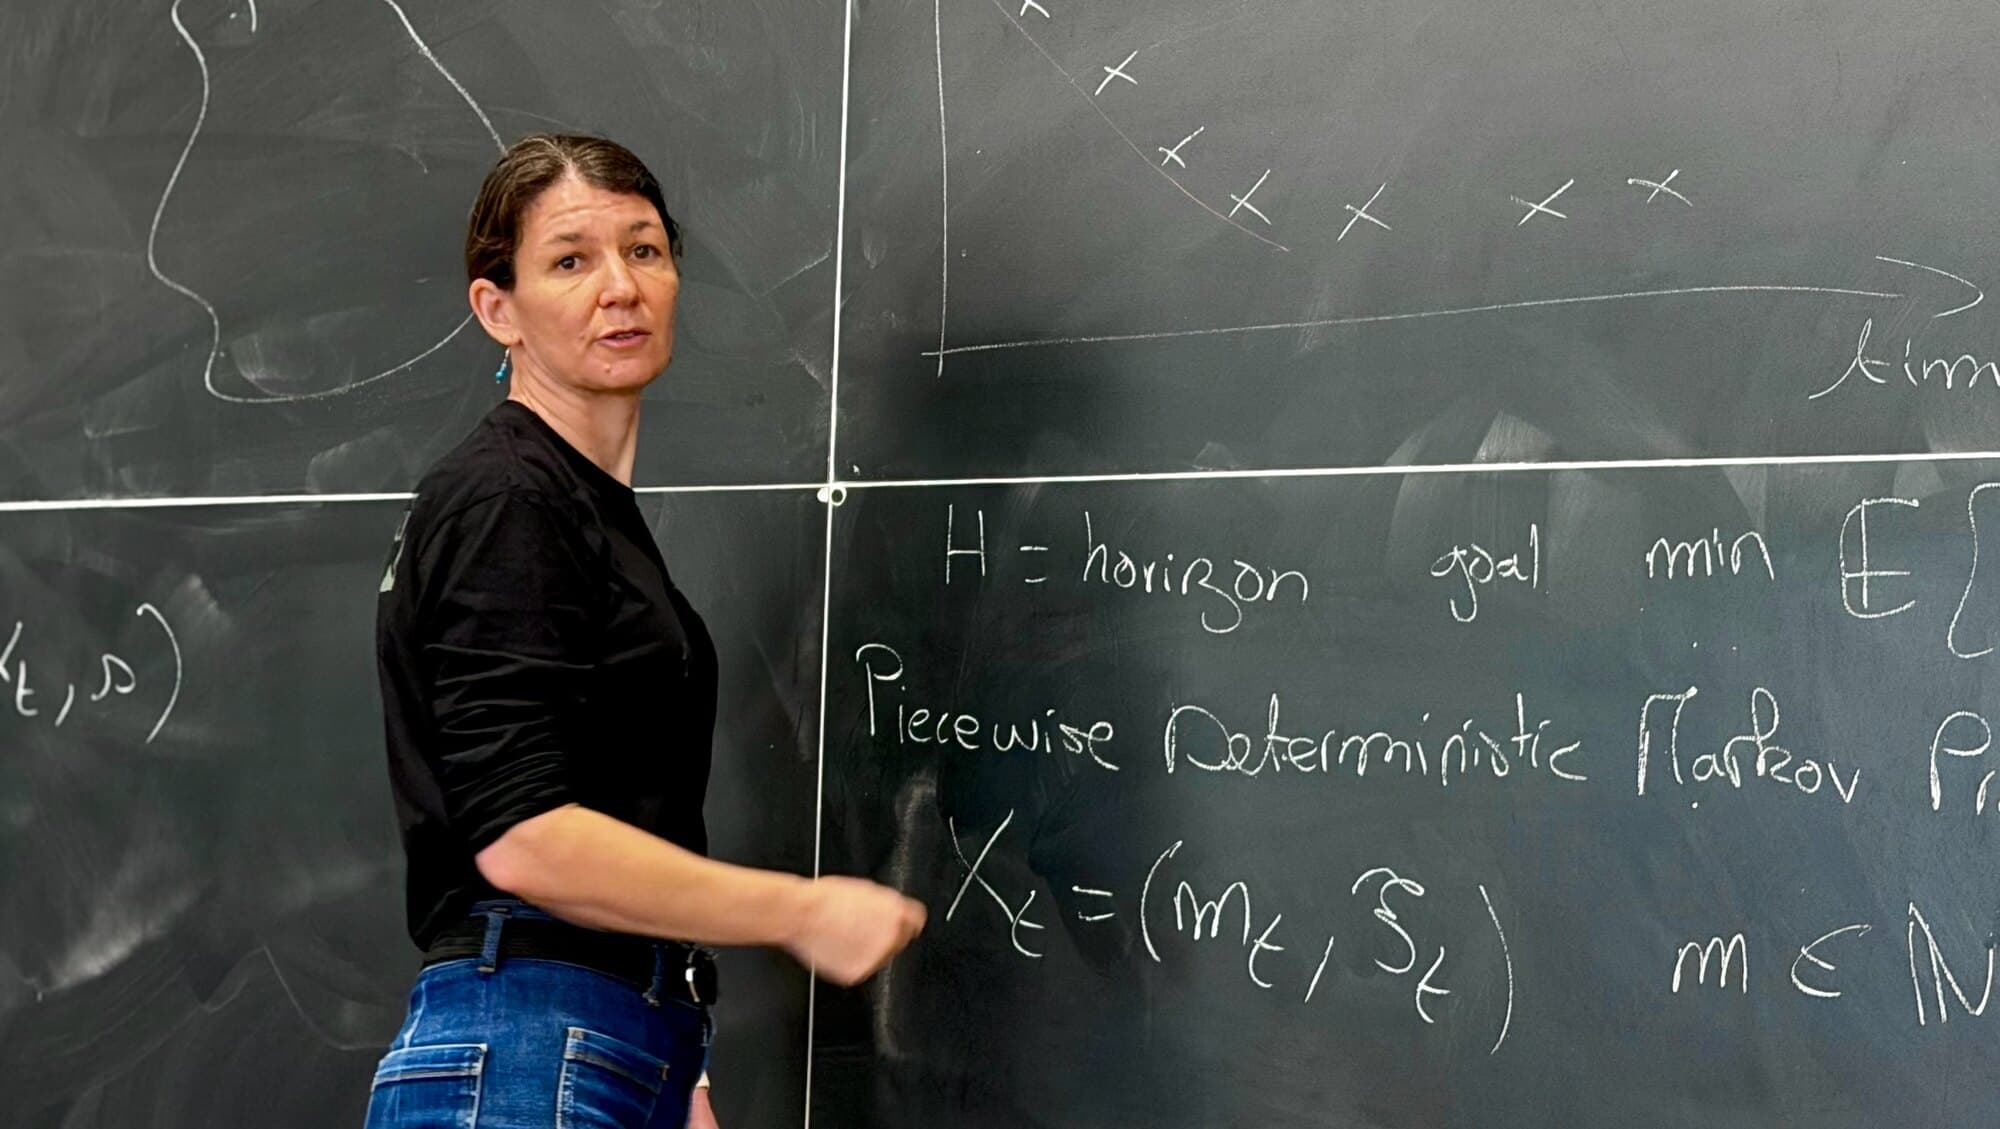 time
H = horizon goal min 𝔼 {
t, s)
Piecewise Deterministic Markov Pr
X_t = (m_t, ξ_t) m ∈ ℕ